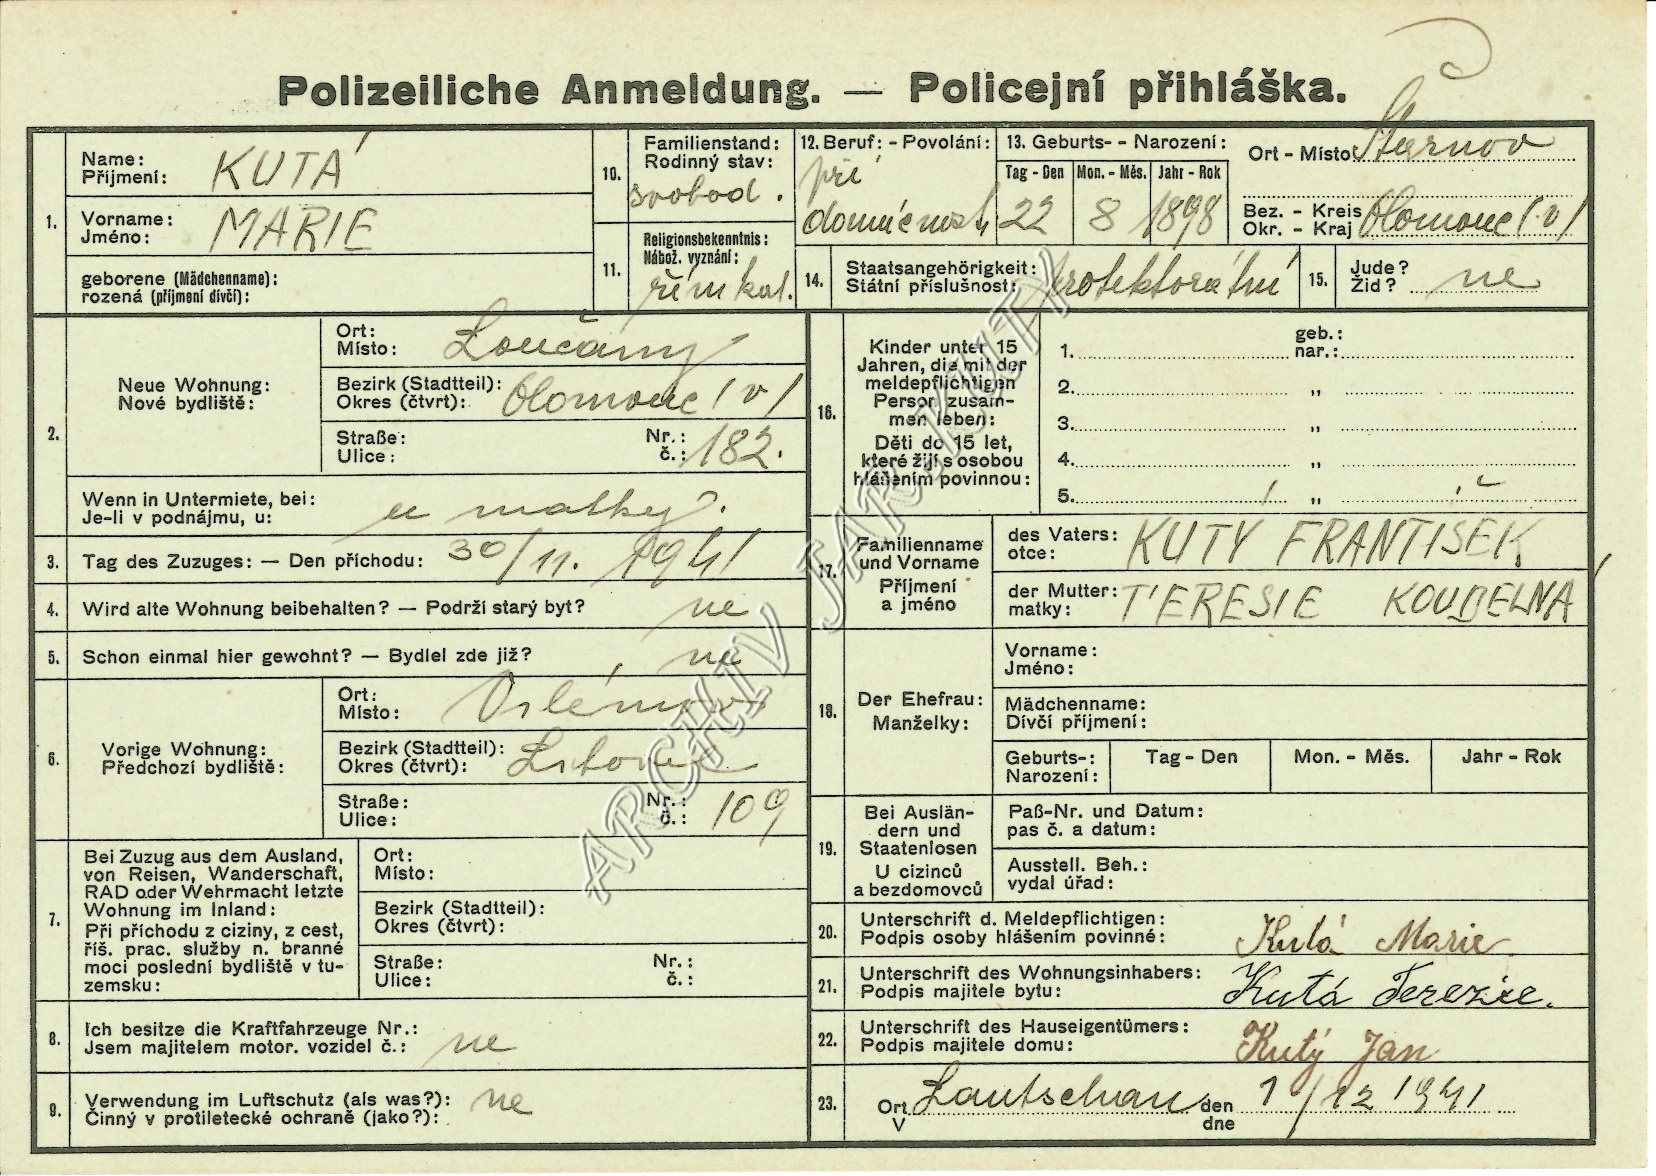 Polizeiliche Anmeldung. — Policejní přihláška.
1.
Name: Příjmení: KUTÁ
Vorname: Jméno: MARIE
geborene (Mädchenname):
rozená (příjmení dívčí):
10. Familienstand: Rodinný stav: svobod.
11. Religionsbekenntnis: Nábož. vyznání: řím kat.
12. Beruf: - Povolání: při domácnosti
13. Geburts- - Narození:
Tag - Den Mon. - Měs. Jahr - Rok
22 8 1898
Ort - Místo
Bez. - Kreis
Okr. - Kraj Olomouc (v)
14. Staatsangehörigkeit:
Státní příslušnost: protektorátní
15. Jude?
Žid? ne
2. Neue Wohnung:
Nové bydliště:
Ort:
Místo: Loučany
Bezirk (Stadtteil):
Okres (čtvrt): Olomouc (v)
Straße: Nr.:
Ulice: č.: 182.
Wenn in Untermiete, bei:
Je-li v podnájmu, u: u matky.
3. Tag des Zuzuges: — Den příchodu: 30/11. 1941
4. Wird alte Wohnung beibehalten? — Podrží starý byt? ne
5. Schon einmal hier gewohnt? — Bydlel zde již? ne
6. Vorige Wohnung:
Předchozí bydliště:
Ort:
Místo:
Bezirk (Stadtteil):
Okres (čtvrt):
Straße: Nr.:
Ulice: č.: 109
7. Bei Zuzug aus dem Ausland,
von Reisen, Wanderschaft,
RAD oder Wehrmacht letzte
Wohnung im Inland:
Při příchodu z ciziny, z cest,
říš. prac. služby n. branné
moci poslední bydliště v tu-
zemsku:
Ort:
Místo:
Bezirk (Stadtteil):
Okres (čtvrt):
Straße: Nr.:
Ulice: č.:
8. Ich besitze die Kraftfahrzeuge Nr.:
Jsem majitelem motor. vozidel č.: ne
9. Verwendung im Luftschutz (als was?):
Činný v protiletecké ochraně (jako?): ne
16. Kinder unter 15
Jahren, die mit der
meldepflichtigen
Person zusam-
men leben:
Děti do 15 let,
které žijí s osobou
hlášením povinnou:
1. geb.: nar.:
2. "
3. "
4. "
5. "
17. Familienname
und Vorname
Příjmení
a jméno
des Vaters:
otce: KUTÝ FRANTIŠEK
der Mutter:
matky: TERESIE KOUBELNÁ
18. Der Ehefrau:
Manželky:
Vorname:
Jméno:
Mädchenname:
Dívčí příjmení:
Geburts-: Narození: Tag - Den Mon. - Měs. Jahr - Rok
19. Bei Auslän-
dern und
Staatenlosen
U cizinců
a bezdomovců
Paß-Nr. und Datum:
pas č. a datum:
Ausstell. Beh.:
vydal úřad:
20. Unterschrift d. Meldepflichtigen:
Podpis osoby hlášením povinné: Kutá Marie.
21. Unterschrift des Wohnungsinhabers:
Podpis majitele bytu: Kutá Terezie.
22. Unterschrift des Hauseigentümers:
Podpis majitele domu: Kutý Jan
23. Ort Lautschan den 1/12 1941
V dne
ARCHIV JAR. KUTÝ